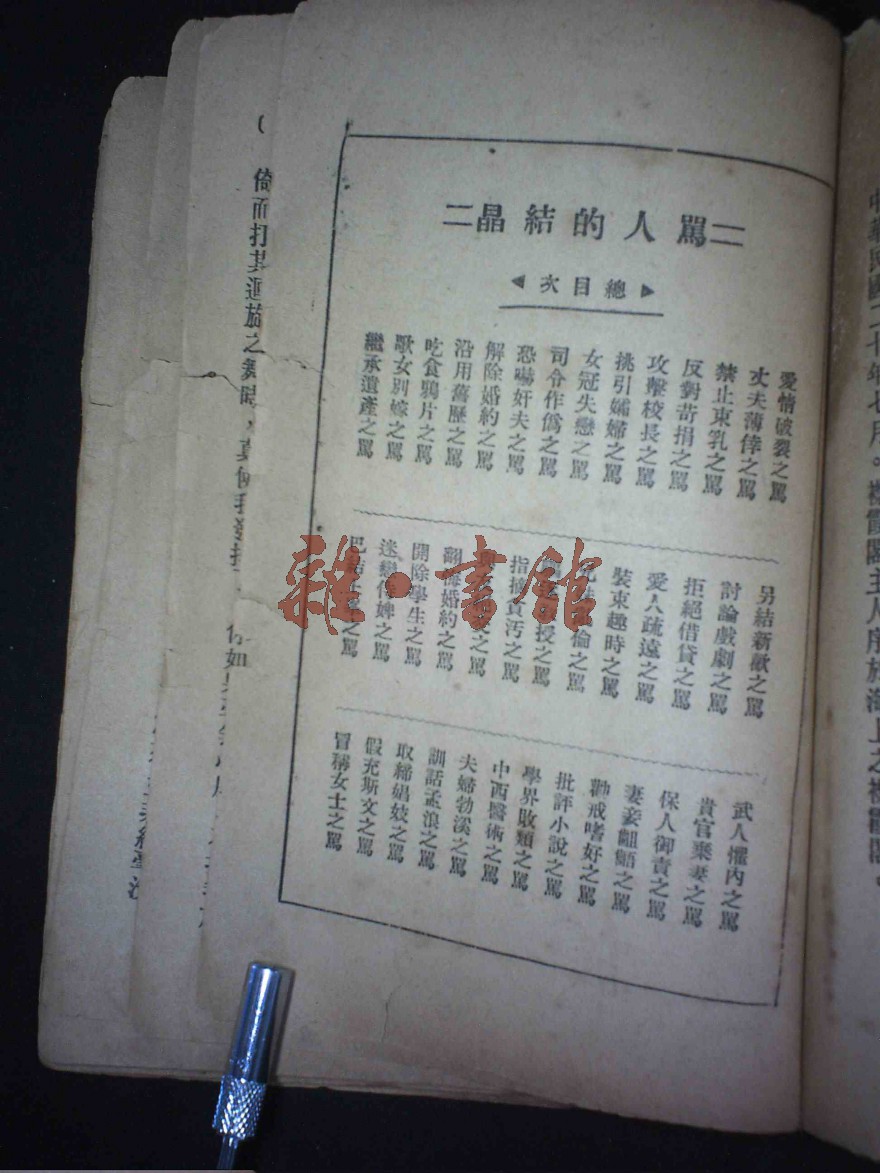 中華民國二十年七月。襟霞閣主人序於海上之襟霞閣。
二罵人的結晶二
總目次
愛情破裂之罵
丈夫薄倖之罵
禁止束乳之罵
反對苛捐之罵
攻擊校長之罵
挑引孀婦之罵
女冠失戀之罵
司令作僞之罵
恐嚇奸夫之罵
解除婚約之罵
沿用舊歷之罵
吃食鴉片之罵
歌女別嫁之罵
繼承遺產之罵
另結新歡之罵
討論戲劇之罵
拒絕借貸之罵
愛人疏遠之罵
裝束趣時之罵
倫之罵
授之罵
指摘貪汚之罵
之罵
翻悔婚約之罵
開除學生之罵
迷戀侍婢之罵
巴結上峯之罵
武人懼內之罵
貴官棄妻之罵
保人卸責之罵
妻妾齟齬之罵
勸戒嗜好之罵
批評小說之罵
學界敗類之罵
中西醫術之罵
夫婦勃溪之罵
訓話孟浪之罵
取締娼妓之罵
假充斯文之罵
冒稱女士之罵
倚而打其迴旋之舞時，莫
雜·書館